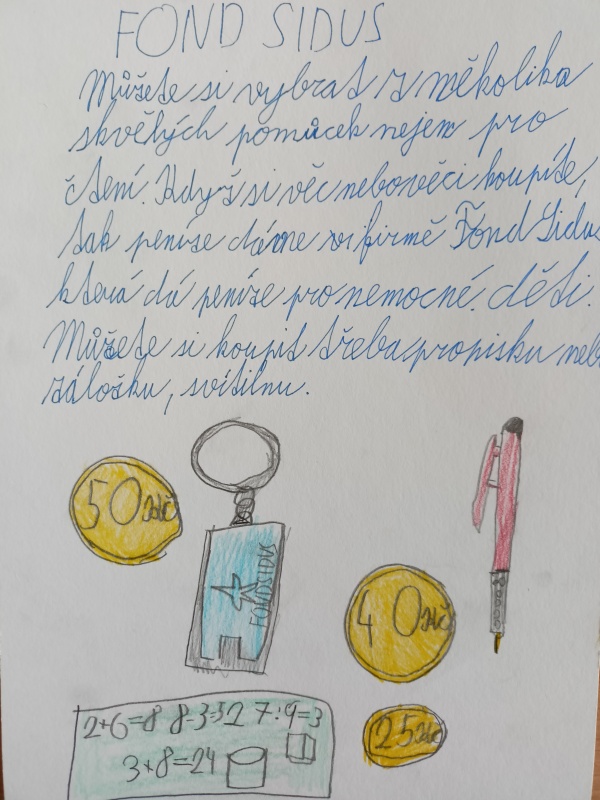 FOND SIDUS
Můžete si vybrat z několika
skvělých pomůcek nejen pro
čtení. Když si věc nebo věci koupíte,
tak peníze dáme vi firmě Fond Sidus
která dá peníze pro nemocné. děti.
Můžete si koupit třeba propisku neb
záložku, svítilnu.
50 Kč
FOND SIDUS
40 Kč
25 Kč
2+6=8 8-3=
3+8=24